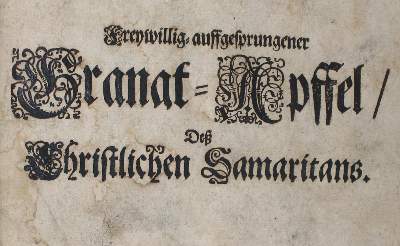 Freywillig-auffgesprungener
Granat-Apffel/
Deß
Christlichen Samaritans.